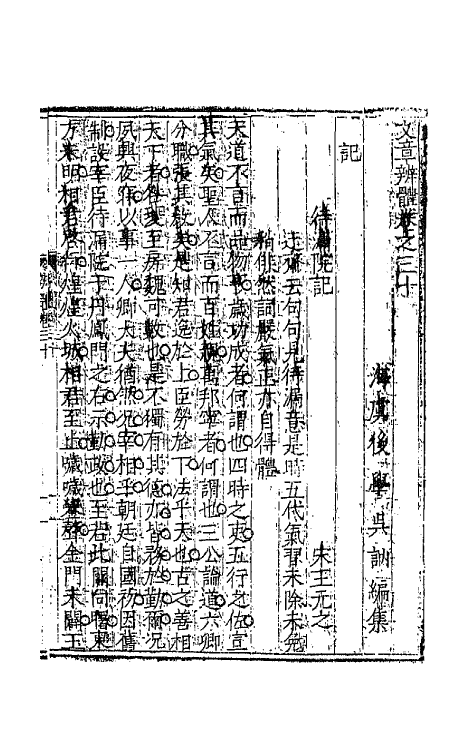 文章辨體卷之三十
海虞後學吳訥編集
記
待漏院記　宋王元之
迂齋云句句見待漏意是時五代氣習未除未免
稍俳然詞嚴氣正亦自得體
天道不言而品物亨歲功成者何謂也四時之吏五行之佐宣
其氣矣聖人不言而百姓親萬邦寧者何謂也三公論道六卿
分職張其教矣是知君逸於上臣勞於下法乎天也古之善相
天下者自咎夔至房魏可數也是不獨有其德亦皆務於勤爾況
夙興夜寐以事一人卿大夫猶然況宰相乎朝廷自國初因舊
制設宰臣待漏院于丹鳳門之右示勤政也至若北闕向曙東
方未明相君啓行煌煌火城相君至止噦噦鑾聲金門未闢玉